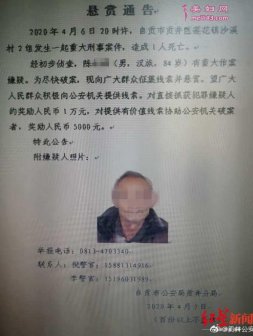 悬赏通告
2020年4月6日20时许，自贡市贡井区莲花镇沙溪
村2组发生一起重大刑事案件，造成1人死亡。
经初步侦查，陈（男，汉族，84岁）有重大作案
嫌疑。为尽快破案，现向广大群众征集线索并悬赏。望广大
人民群众积极向公安机关提供线索。对直接抓获犯罪嫌疑人
的奖励人民币1万元，对提供有价值线索协助公安机关破案
者，奖励人民币5000元。
特此通告
附嫌疑人照片：
举报电话：0813-4703340
联系人：倪警官：15881314916
李警官：15196031989
自贡市公安局贡井分局
2020年4月7日